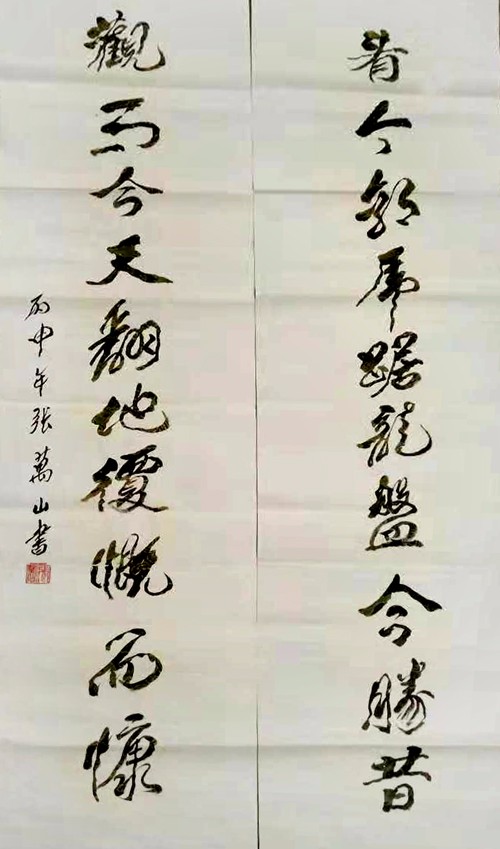 看今朝虎踞龍盤今勝昔
觀而今天翻地覆慨而慷
丙申年張萬山書